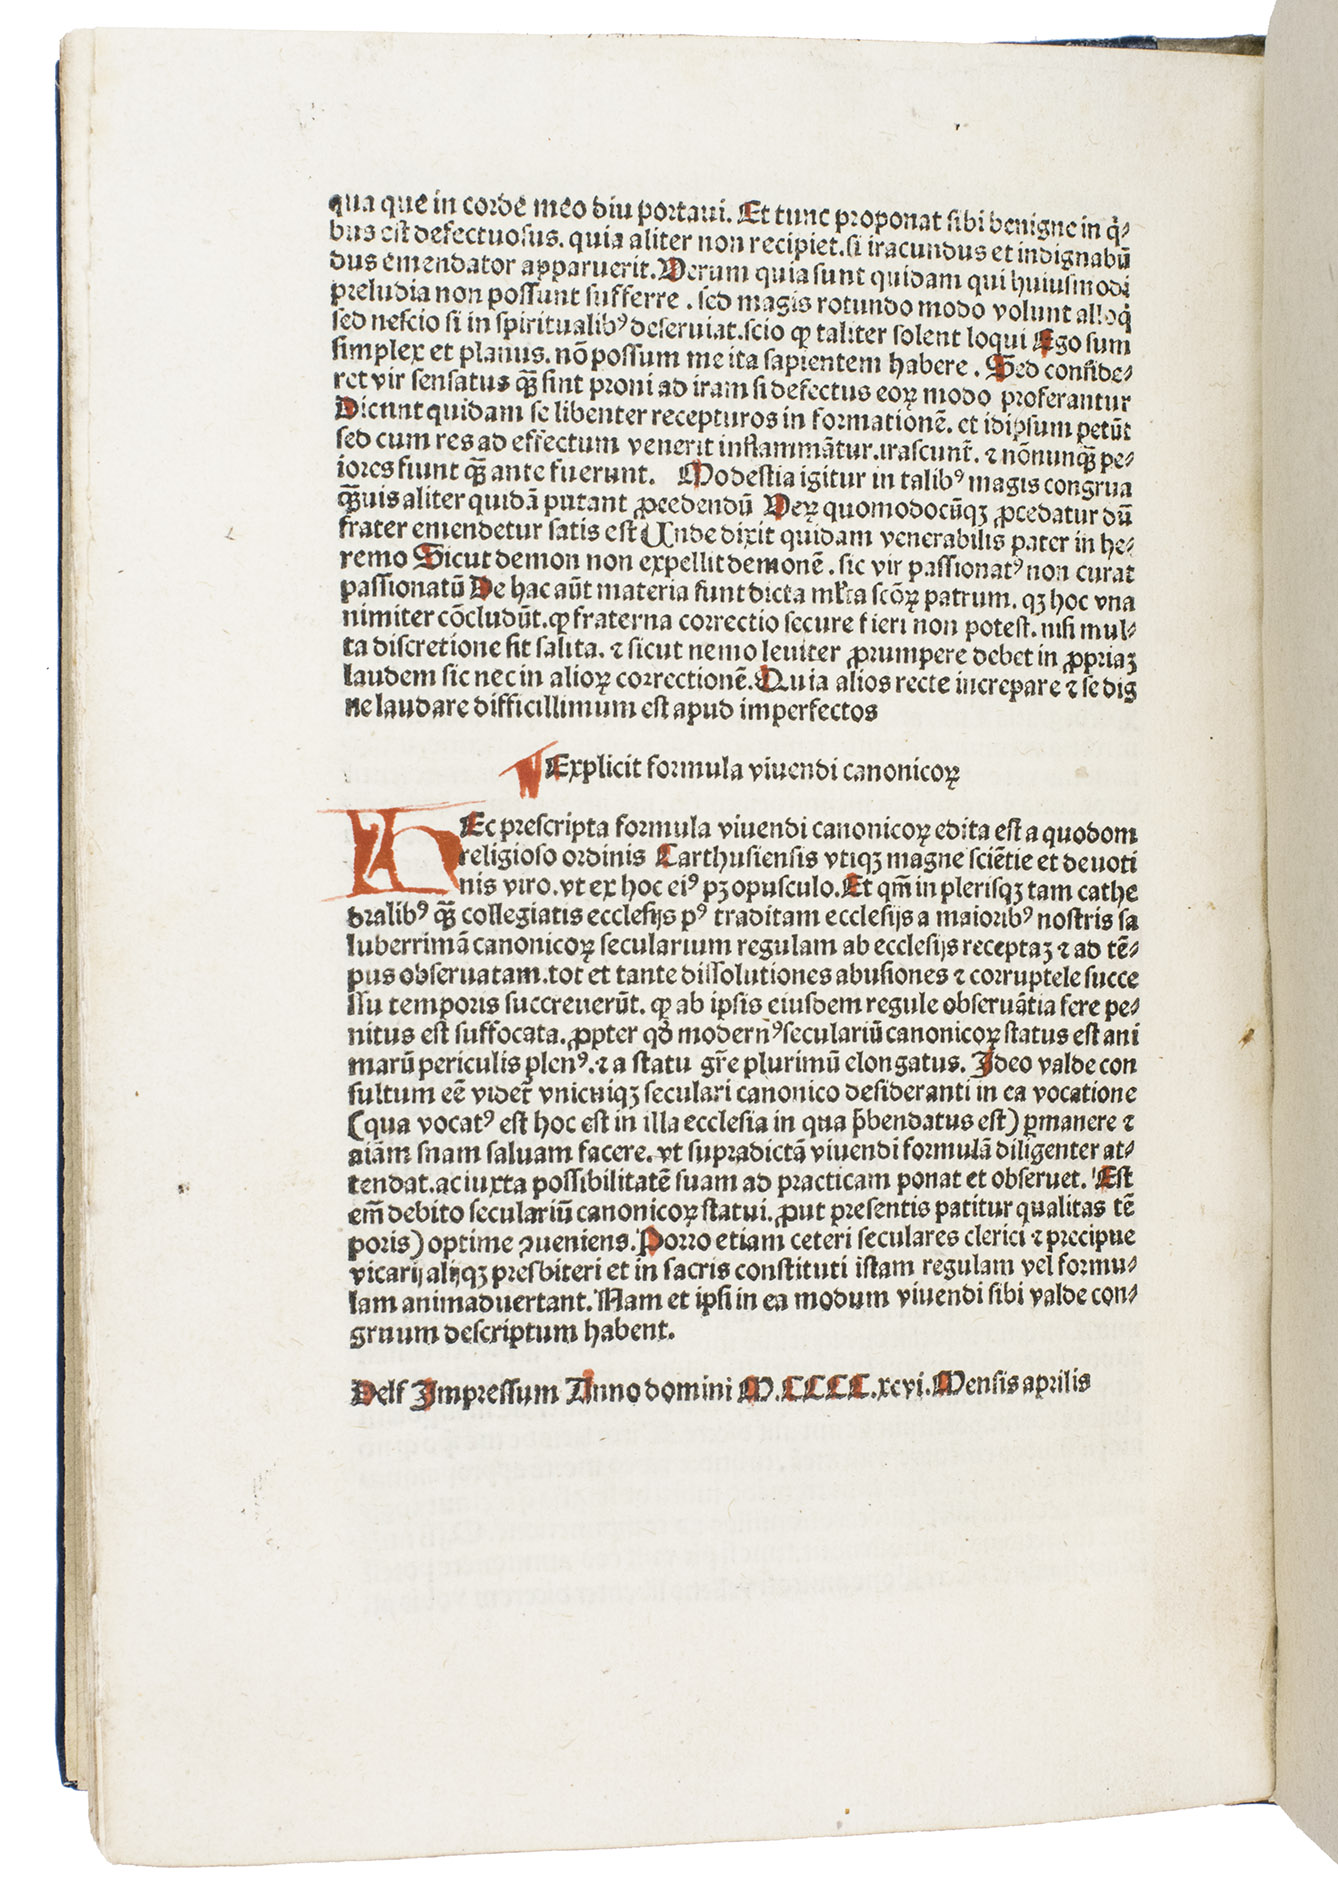 qua que in corde meo diu portaui. Et tunc proponat sibi benigne in q̇-
bus est defectuosus. quia aliter non recipiet. si iracundus et indignabū
dus emendator apparuerit. Verum quia sunt quidam qui huiusmodi
preludia non possunt sufferre . sed magis rotundo modo volunt alloq̇
sed nescio si in spiritualibꝰ deseruiat. scio ꝙ taliter solent loqui Ego sum
simplex et planus. nō possum me ita sapientem habere . Sed conside-
ret vir sensatus qȝ̄ sint proni ad iram si defectus eoꝝ modo proferantur
Dicunt quidam se libenter recepturos in formationē. et idipsum petūt
sed cum res ad effectum venerit inflammātur. irascunt᷑. ⁊ nōnunqȝ̄ pe-
iores fiunt qȝ̄ ante fuerunt. Modestia igitur in talibꝰ magis congrua
qȝ̄uis aliter quidā putant ꝓcedendū Veꝝ quomodocūqȝ ꝓcedatur dū
frater emendetur satis est Unde dixit quidam venerabilis pater in he-
remo Sicut demon non expellit demonē. sic vir passionatꝰ non curat
passionatū De hac aūt materia sunt dicta ml̄ta scōꝝ patrum. qȝ hoc vna
nimiter cōcludūt. ꝙ fraterna correctio secure fieri non potest. nisi mul-
ta discretione sit salita. ⁊ sicut nemo leuiter ꝓrumpere debet in ꝓpriaȝ
laudem sic nec in alioꝝ correctionē. Quia alios recte increpare ⁊ se dig
ne laudare difficillimum est apud imperfectos
Explicit formula viuendi canonicoꝝ
HEc prescripta formula viuendi canonicoꝝ edita est a quodom
religioso ordinis Carthusiensis vtiqȝ magne sciētie et deuoti
nis viro. vt ex hoc eiꝰ pȝ opusculo. Et qm̄ in plerisqȝ tam cathe
dralibꝰ qȝ̄ collegiatis ecclesijs pꝰ traditam ecclesijs a maioribꝰ nostris sa
luberrimā canonicoꝝ secularium regulam ab ecclesijs receptaȝ ⁊ ad tē-
pus obseruatam. tot et tante dissolutiones abusiones ⁊ corruptele succe
ssu temporis succreuerūt. ꝙ ab ipsis eiusdem regule obseruātia fere pe-
nitus est suffocata. ꝓpter qd̄ modernꝰ seculariū canonicoꝝ status est ani
marū periculis plenꝰ. ⁊ a statu gr̄e plurimū elongatus. Ideo valde con
sultum eē videt᷑ vnicuiqȝ seculari canonico desideranti in ea vocatione
(qua vocatꝰ est hoc est in illa ecclesia in qua p̄bendatus est) ꝑmanere ⁊
aiām snam saluam facere. vt supradictā viuendi formulā diligenter at-
tendat. ac iuxta possibilitatē suam ad practicam ponat et obseruet. Est
em̄ debito seculariū canonicoꝝ statui. ꝓut presentis patitur qualitas tē
poris) optime ꝯueniens. Porro etiam ceteri seculares clerici ⁊ precipue
vicarij alijqȝ presbiteri et in sacris constituti istam regulam vel formu-
lam animaduertant. Nam et ipsi in ea modum viuendi sibi valde con-
gruum descriptum habent.
Delf Impressum Anno domini M.CCCC.xcvi. Mensis aprilis